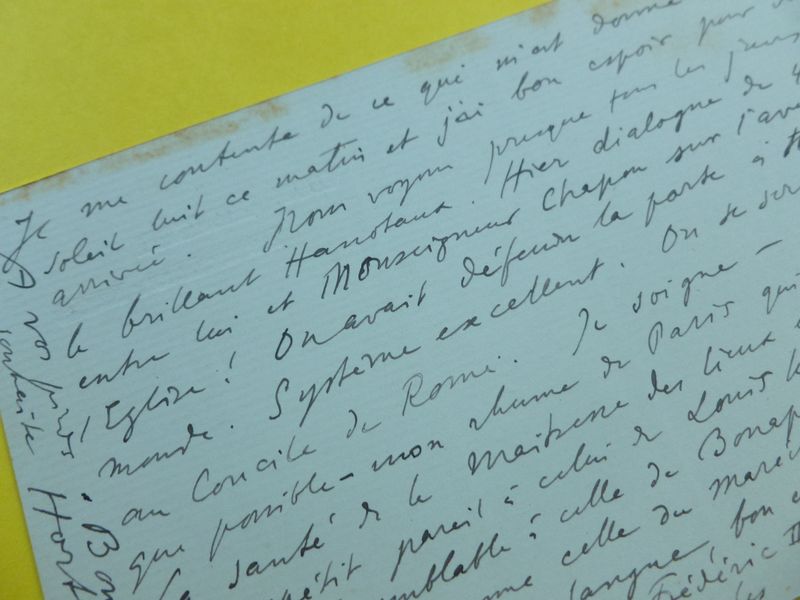 Je me contente de ce qui m'est donné
soleil luit ce matin et j'ai bon espoir pour
arrivée. Nous voyons presque tous les jours
le brillant Hanotaux. Hier dialogue de 4
entre lui et Monseigneur Chapon sur l'ave
l'Eglise! On avait défendu la porte à
monde. Système excellent. On se ser
au Concile de Rome. Je soigne -
que possible - mon rhume de Paris qui
la santé de la Maitresse des lieux
pétit pareil à celui de Louis
semblable à celle de Bonap
me celle du maréc
langue, bon
Frédéric II
A vos pieds! Bon
souhaite